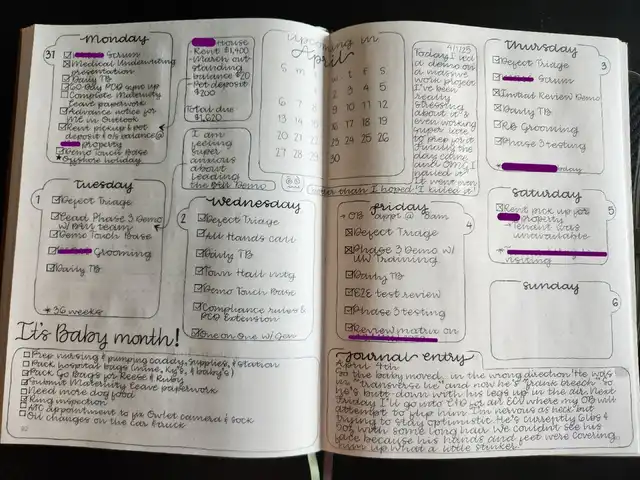 Monday
31
Scrum
Medical Underwriting
presentation
Daily TB
60 Day POD sync up
Complete Maternity
Leave paperwork
Advance notice for
ME in Outlook
Rent pickup & pet
deposit & o/s balance @
property
Demo Touch Base
* Offshore holiday
House
- Rent $1,400
- March out-
standing
balance $20
- Pet deposit
$200
Total due
$1,620
I am
feeling
super
anxious
about leading
the Demo
upcoming in
April
S M T F S
3 4 5
6 7 10 11 12
13 14 17 18 19
20 21 24 25 26
27 28 30
4/1/25
Today I led
a demo on
a massive
work project
I've been
really
stressing
about it &
even working
super late
to prep for it
Finally the
day came
and OMG I
nailed it!
It went even
better than I hoped! I killed it!
Tuesday
1
Defect Triage
Lead Phase 3 Demo
w/ team
Demo Touch Base
Grooming
Daily TB
* 36 weeks
Wednesday
2
Defect Triage
All Hands call
Daily TB
Town Hall mtg
Demo Touch Base
Compliance rules &
Extension
One on One w/ Gen
It's Baby month!
Prep nursing & pumping caddy, supplies, & station
Pack hospital bags (mine, Ky's, & baby's)
Pack Go Bags for Reese & Ruby
Submit Maternity Leave paperwork
Need more dog food
Ring inspection
appointment to fix Owlet camera & sock
Oil changes on the car & truck
Thursday
3
Defect Triage
Scrum
Initial Review Demo
Daily TB
RB Grooming
Phase 3 testing
Friday
4
→ OB appt @ 8am
Defect Triage
Phase 3 Demo w/
UW Training
Daily TB
E2E test review
Phase 3 testing
Review matrix on
Saturday
5
Rent pick up for
property
→ Tenant was
unavailable
visiting
Sunday
6
Journal entry
April 4th
So the baby moved... in the wrong direction. He was
in "transverse lie" and now he's "frank breech" so
he's butt down with his legs up in the air. Next
Friday I'll go into L&D for an ECV where my OB will
attempt to flip him. I'm nervous as heck but
trying to stay optimistic. He's currently 6lbs &
3oz with some long hair. We couldn't see his
face because his hands and feet were covering
him up. What a little stinker.